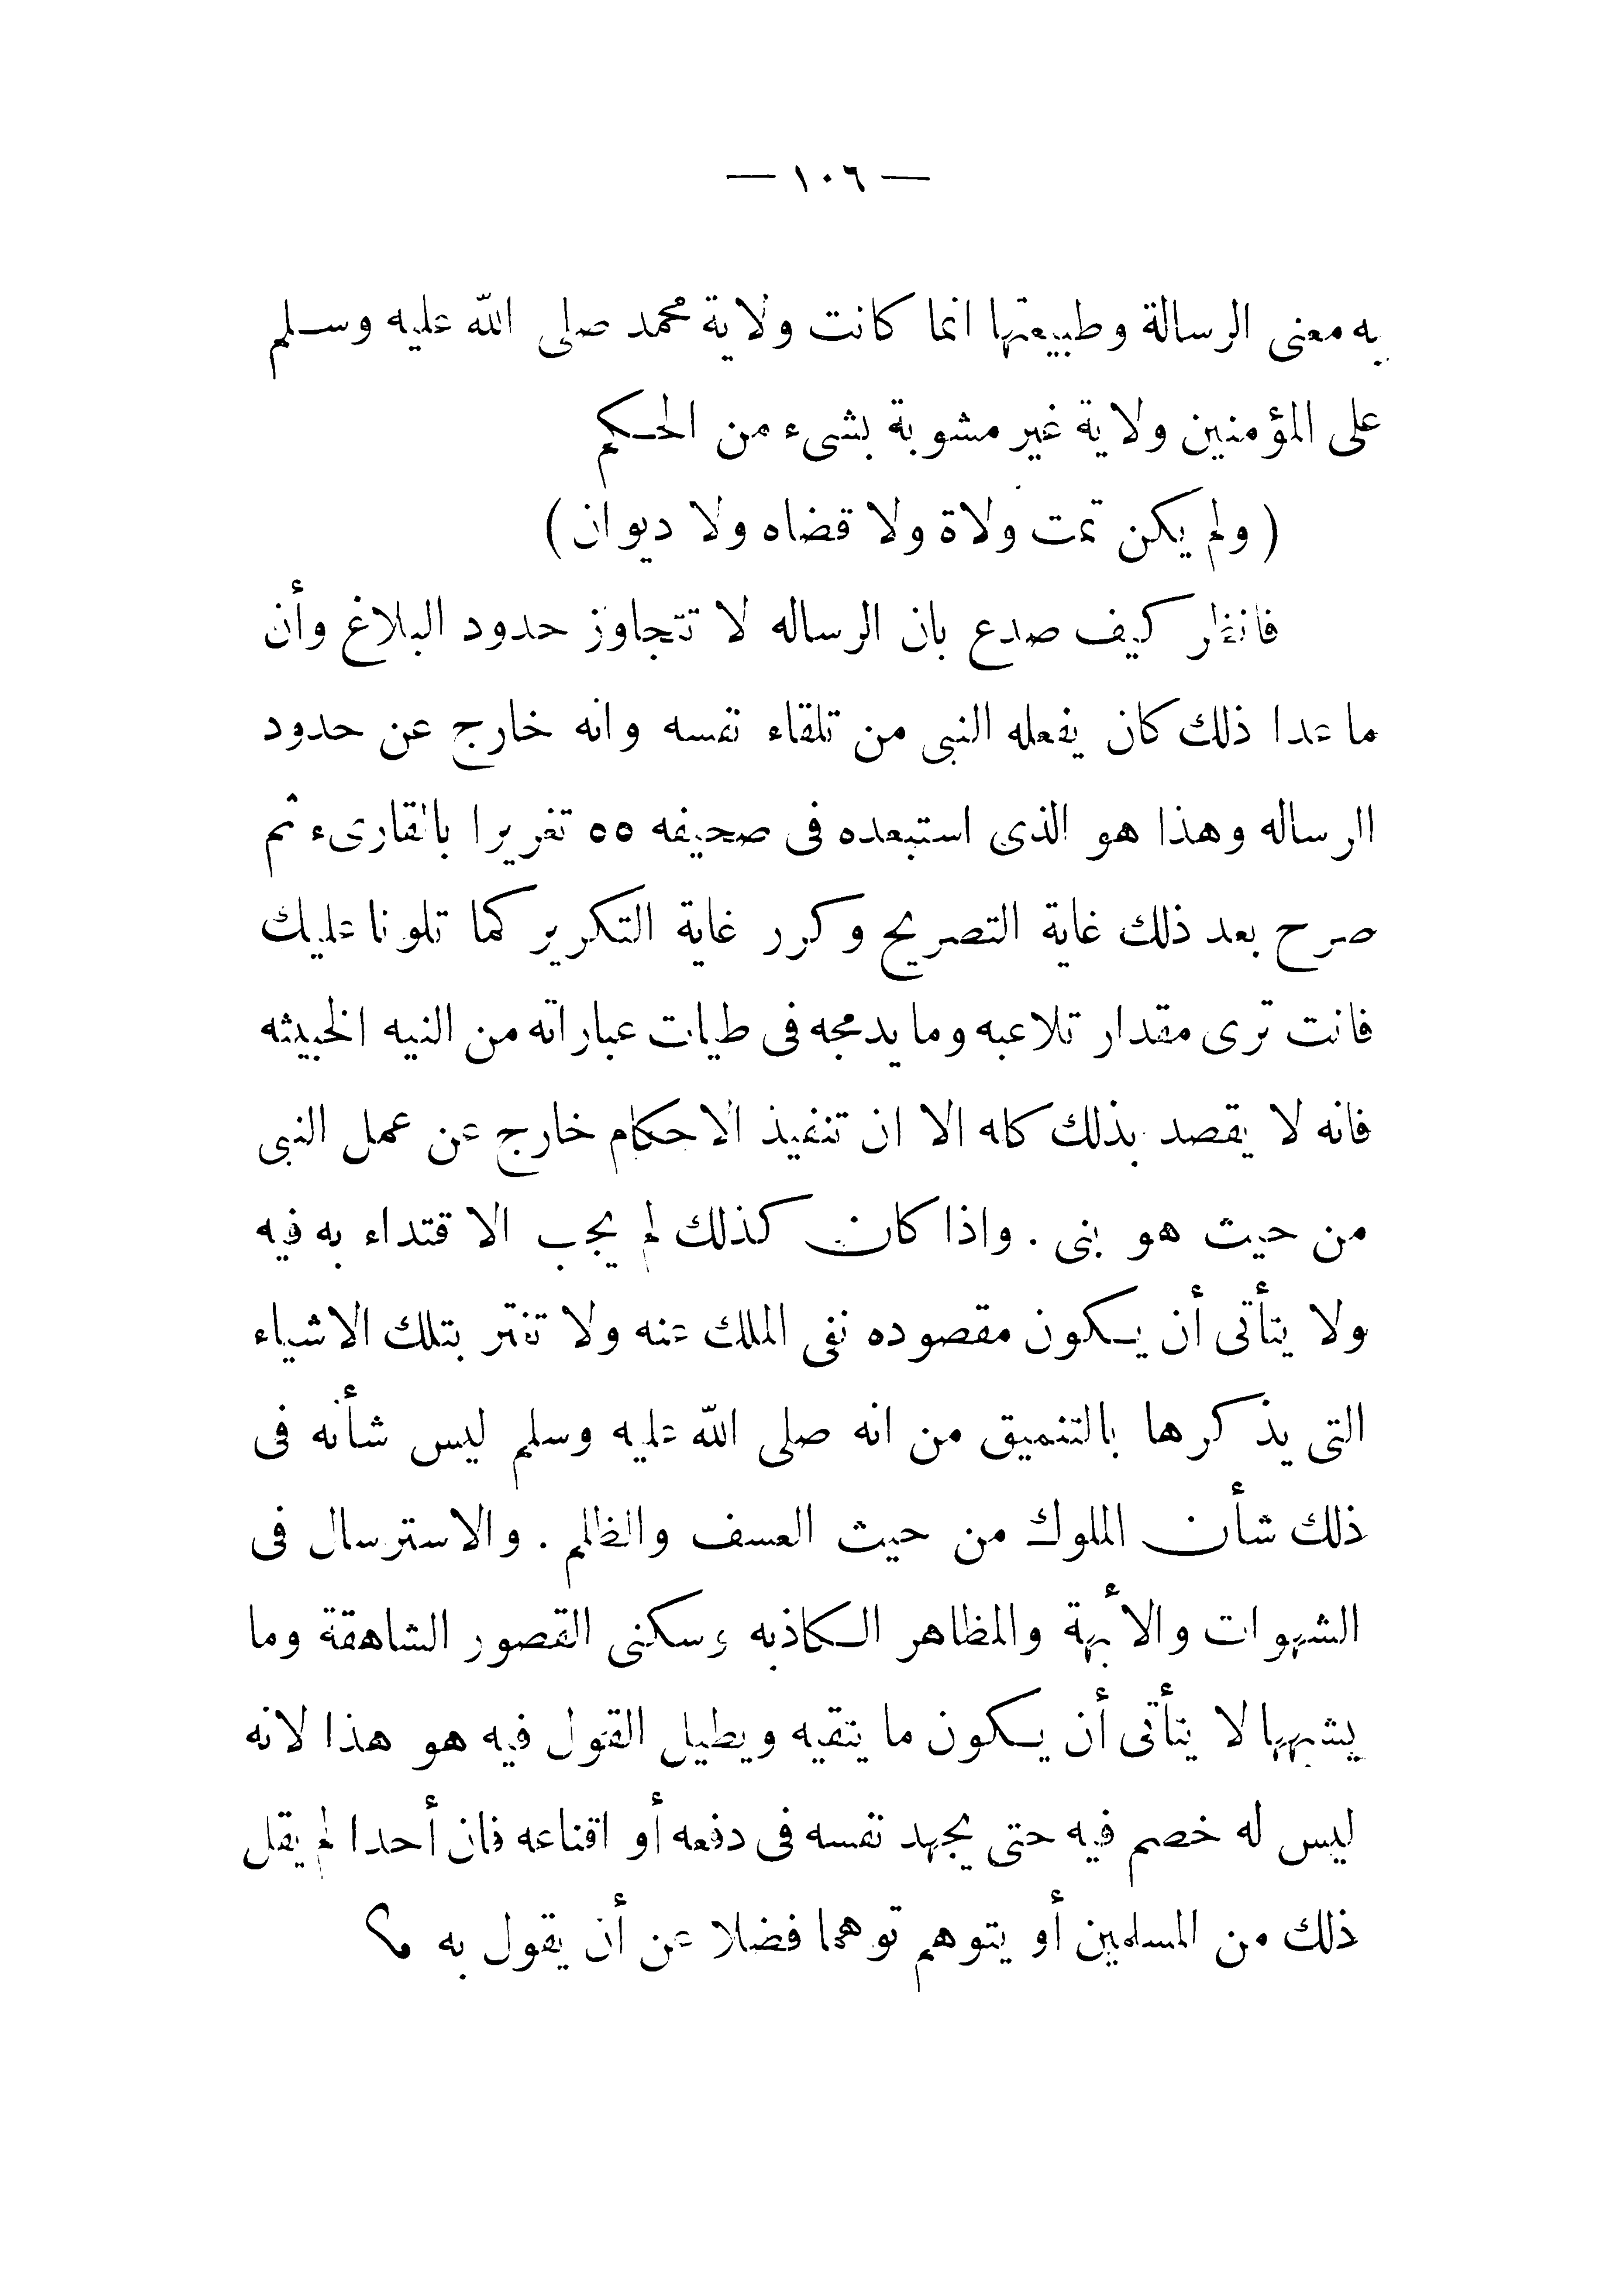 — ١٠٦ —
به معنى الرسالة وطبيعتها انما كانت ولاية محمد صلى الله عليه وسلم
على المؤمنين ولاية غير مشوبة بشىء من الحكم
( ولم يكن تمت ولاة ولا قضاه ولا ديوان )
فانظر كيف صدع بان الرساله لا تتجاوز حدود البلاغ وأن
ما عدا ذلك كان يفعله النبى من تلقاء نفسه وانه خارج عن حدود
الرساله وهذا هو الذى استبعده فى صحيفه ٥٥ تغريرا بالقارىء ثم
صرح بعد ذلك غاية التصريح وكرر غاية التكرير كما تلونا عليك
فانت ترى مقدار تلاعبه وما يدمجه فى طيات عباراته من النيه الخبيثه
فانه لا يقصد بذلك كله الا ان تنفيذ الاحكام خارج عن عمل النبى
من حيث هو نبى . واذا كان كذلك لم يجب الاقتداء به فيه
ولا يتأتى أن يكون مقصوده نفى الملك عنه ولا تغتر بتلك الاشياء
التى يذكرها بالتنميق من انه صلى الله عليه وسلم ليس شأنه فى
ذلك شأن الملوك من حيث العسف والظلم . والاسترسال فى
الشهوات والأبهة والمظاهر الكاذبه وسكنى القصور الشاهقة وما
يشبهها لا يتأتى أن يكون ما يتقيه ويطيل القول فيه هو هذا لانه
ليس له خصم فيه حتى يجهد نفسه فى دفعه أو اقناعه فان أحدا لم يقل
ذلك من المسلمين أو يتوهم توهما فضلا عن أن يقول به ؟